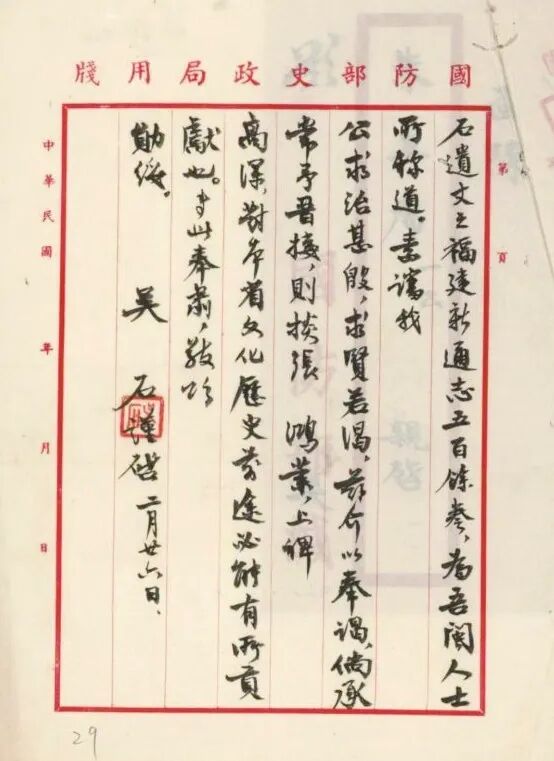 國防部史政局用牋
第 頁
石遺文之福建新通志五百餘卷，為吾閩人士
所稱道。素諗我
公求治甚殷，求賢若渴，茲介以奉謁，倘承
常予晉接，則挨張 鴻業，上禆
高深，對本省文化歷史前途必能有所貢
獻也。專此奉肅，敬頌
勛綏。
吳 石謹啓 二月廿六日、
中華民國 年 月 日
29